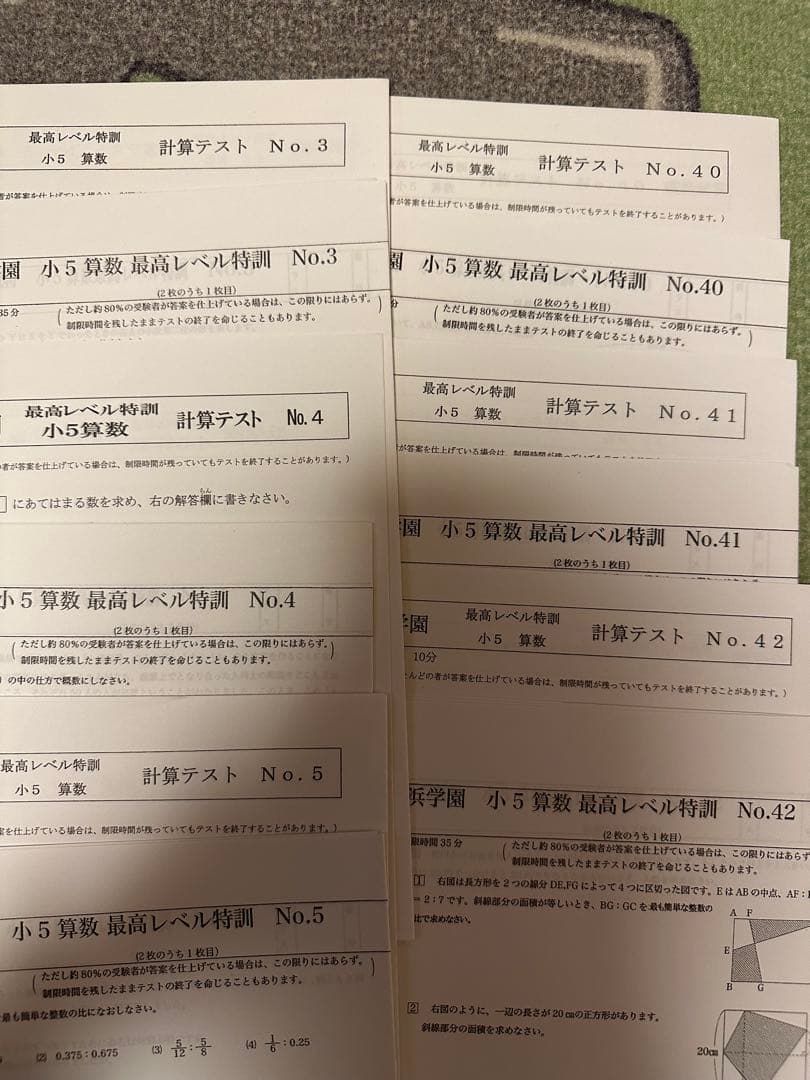 最高レベル特訓
小5 算数
計算テスト No.3
者が答案を仕上げている場合は、制限
園 小5算数 最高レベル特訓 No.3
(2枚のうち1枚目)
35分
(ただし約80%の受験者が答案を仕上げている場合は、この限りにはあらず。
制限時間を残したままテストの終了を命じることもあります。)
最高レベル特訓
小5算数
計算テスト No.4
の者が答案を仕上げている場合は、制限時間が残っていてもテストを終了することがあります。)
にあてはまる数を求め、右の解答欄に書きなさい。
らん
小5算数 最高レベル特訓 No.4
(2枚のうち1枚目)
(ただし約80%の受験者が答案を仕上げている場合は、この限りにはあらず。
制限時間を残したままテストの終了を命じることもあります。)
)の中の仕方で概数にしなさい。
最高レベル特訓
小5 算数
計算テスト No.5
者が答案を仕上げている場合は、制限時間が残っていてもテストを終了することがあります。)
小5算数 最高レベル特訓 No.5
(2枚のうち1枚目)
(ただし約80%の受験者が答案を仕上げている場合は、この限りにはあらず。
制限時間を残したままテストの終了を命じることもあります。)
最も簡単な整数の比になおしなさい。
(2) 0.375:0.675 (3) 5/12:5/8 (4) 1/6:0.25
最高レベル特訓
小5 算数
計算テスト No.40
者が答案を仕上げている場合は、制限時間が残っていてもテストを終了することがあります。)
園 小5算数 最高レベル特訓 No.40
(2枚のうち1枚目)
分
(ただし約80%の受験者が答案を仕上げている場合は、この限りにはあらず。
制限時間を残したままテストの終了を命じることもあります。)
最高レベル特訓
小5 算数
計算テスト No.41
者が答案を仕上げている場合は、制限時間が残っていてもテストを終了することがあります。)
学園 小5算数 最高レベル特訓 No.41
(2枚のうち1枚目)
学園
最高レベル特訓
小5 算数
計算テスト No.42
10分
とんどの者が答案を仕上げている場合は、制限時間が残っていてもテストを終了することがあります。)
浜学園 小5算数 最高レベル特訓 No.42
(2枚のうち1枚目)
限時間35分
(ただし約80%の受験者が答案を仕上げている場合は、この限りにはあらず
制限時間を残したままテストの終了を命じることもあります。
1 右図は長方形を2つの線分DE,FGによって4つに区切った図です。EはABの中点、AF:
=2:7です。斜線部分の面積が等しいとき、BG:GCを最も簡単な整数の
比で求めなさい。
A F
E
B G
2 右図のように、一辺の長さが20cmの正方形があります。
斜線部分の面積を求めなさい。
20cm